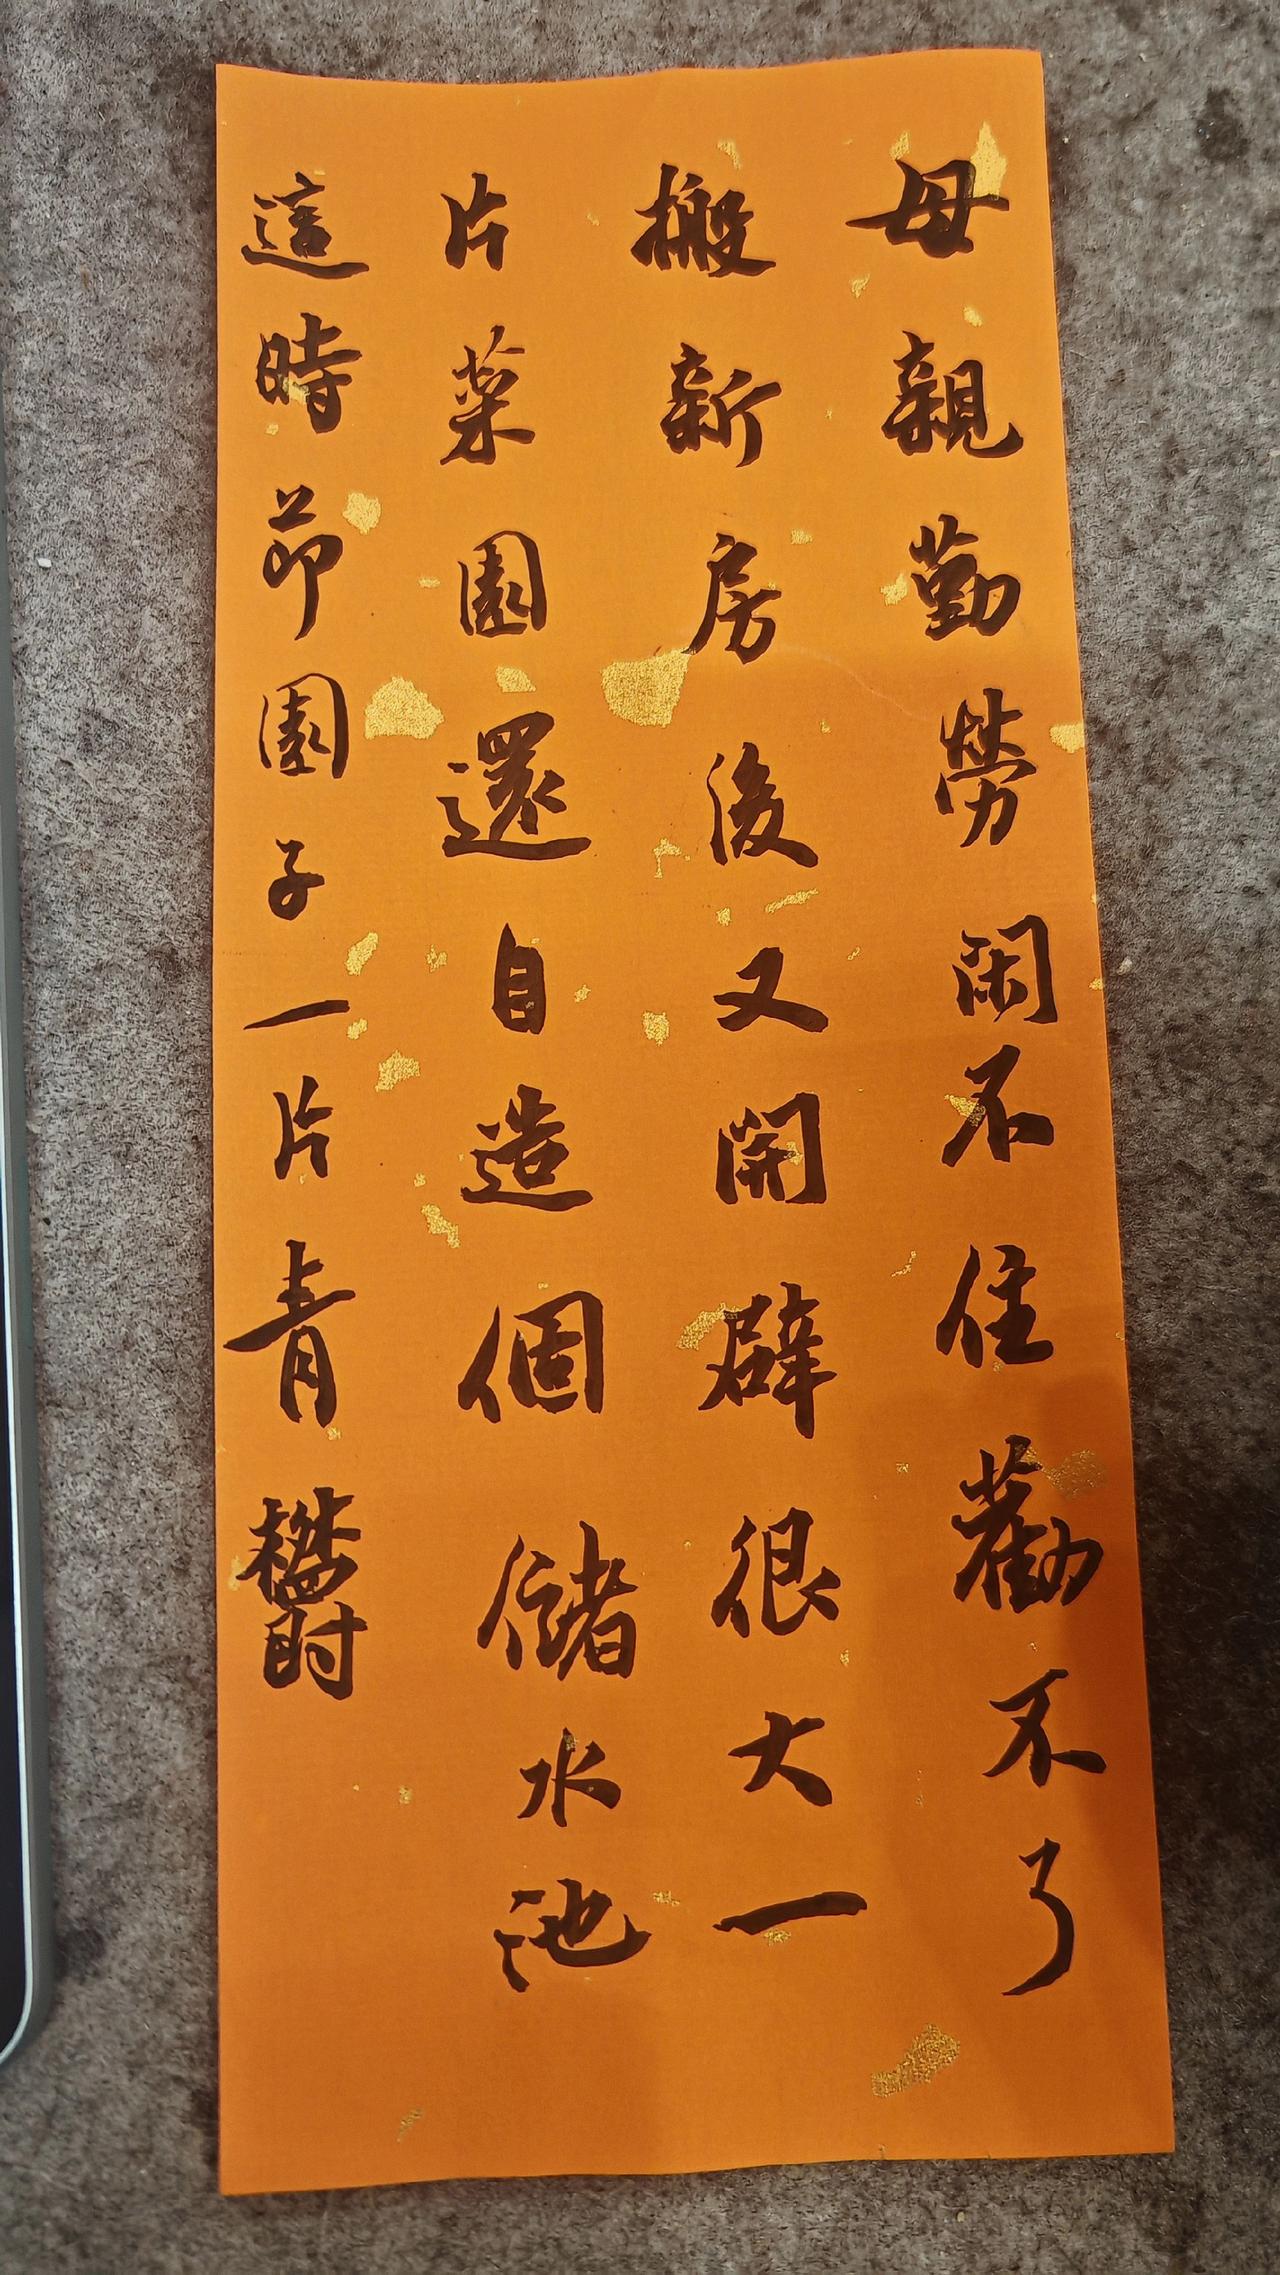 母親勤勞閑不住勸不了
搬新房後又開辟很大一
片菜園還自造個儲水池
這時節園子一片青鬱